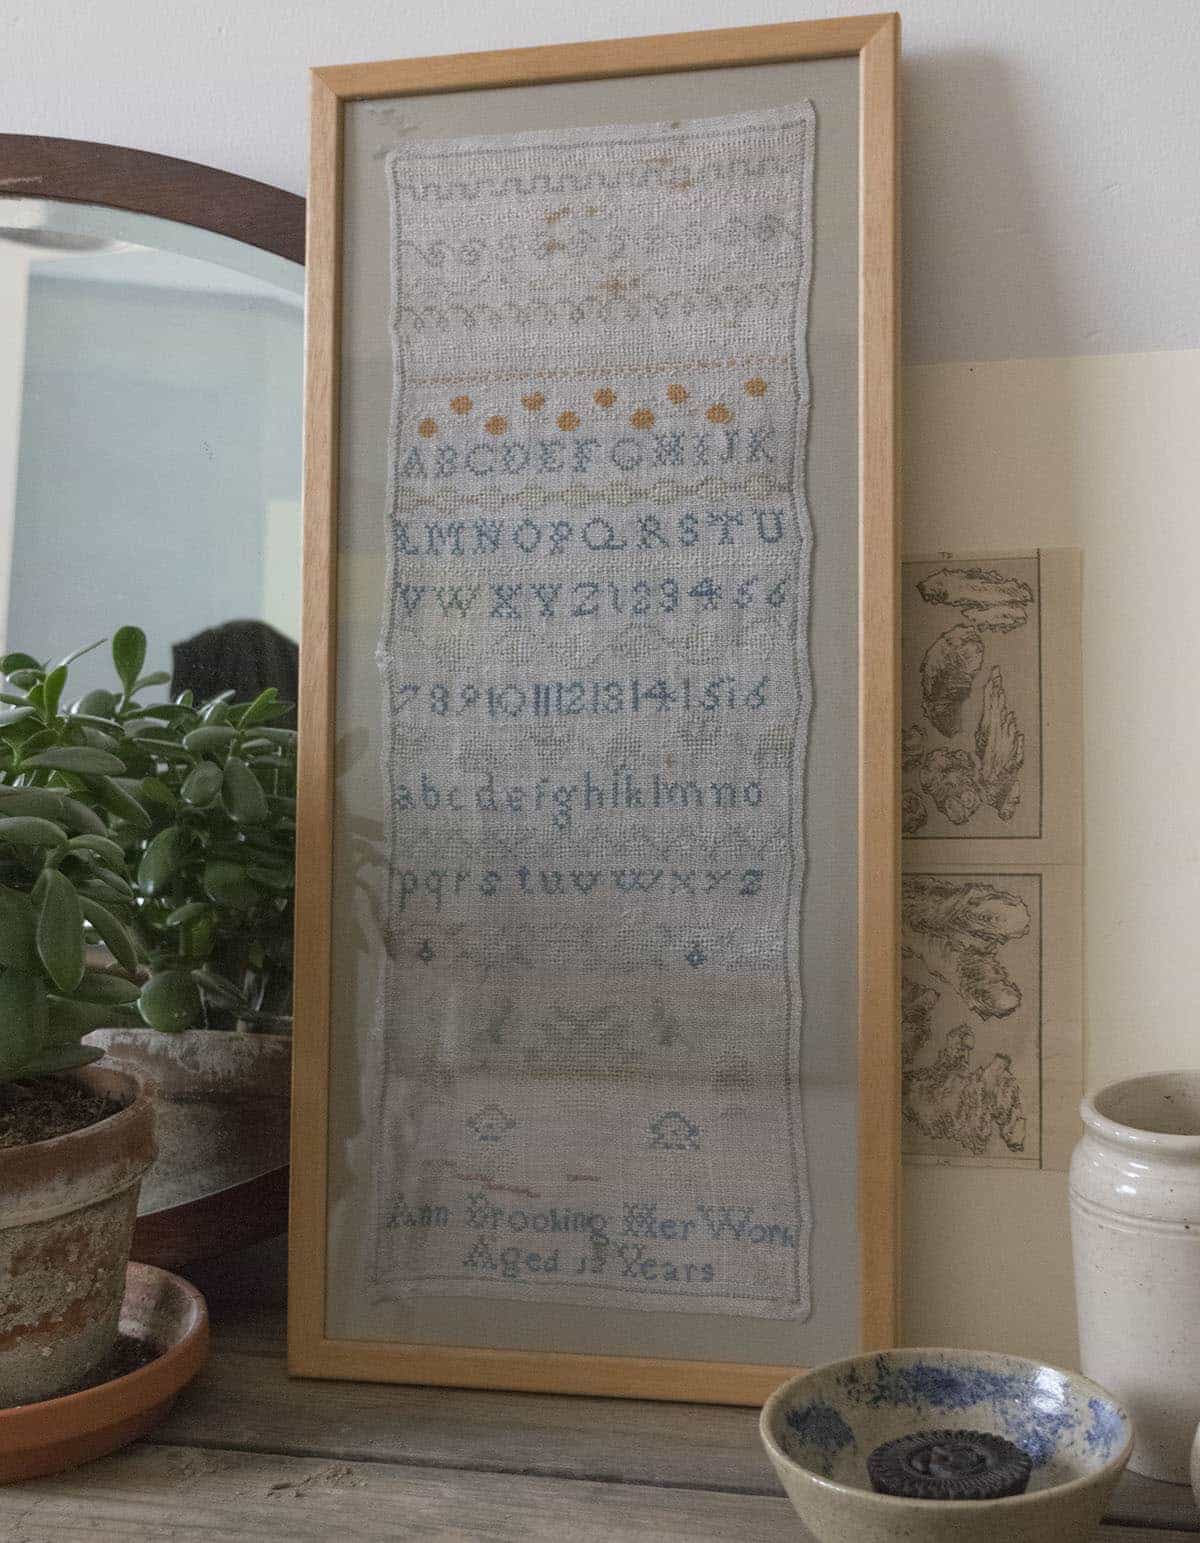 ABCDEFGHIJK
LMNOPQRSTU
VWXYZ123456
78910111213141516
abcdefghiklmno
pqrstuvwxyz
Ann Brooking Her Work
Aged Years